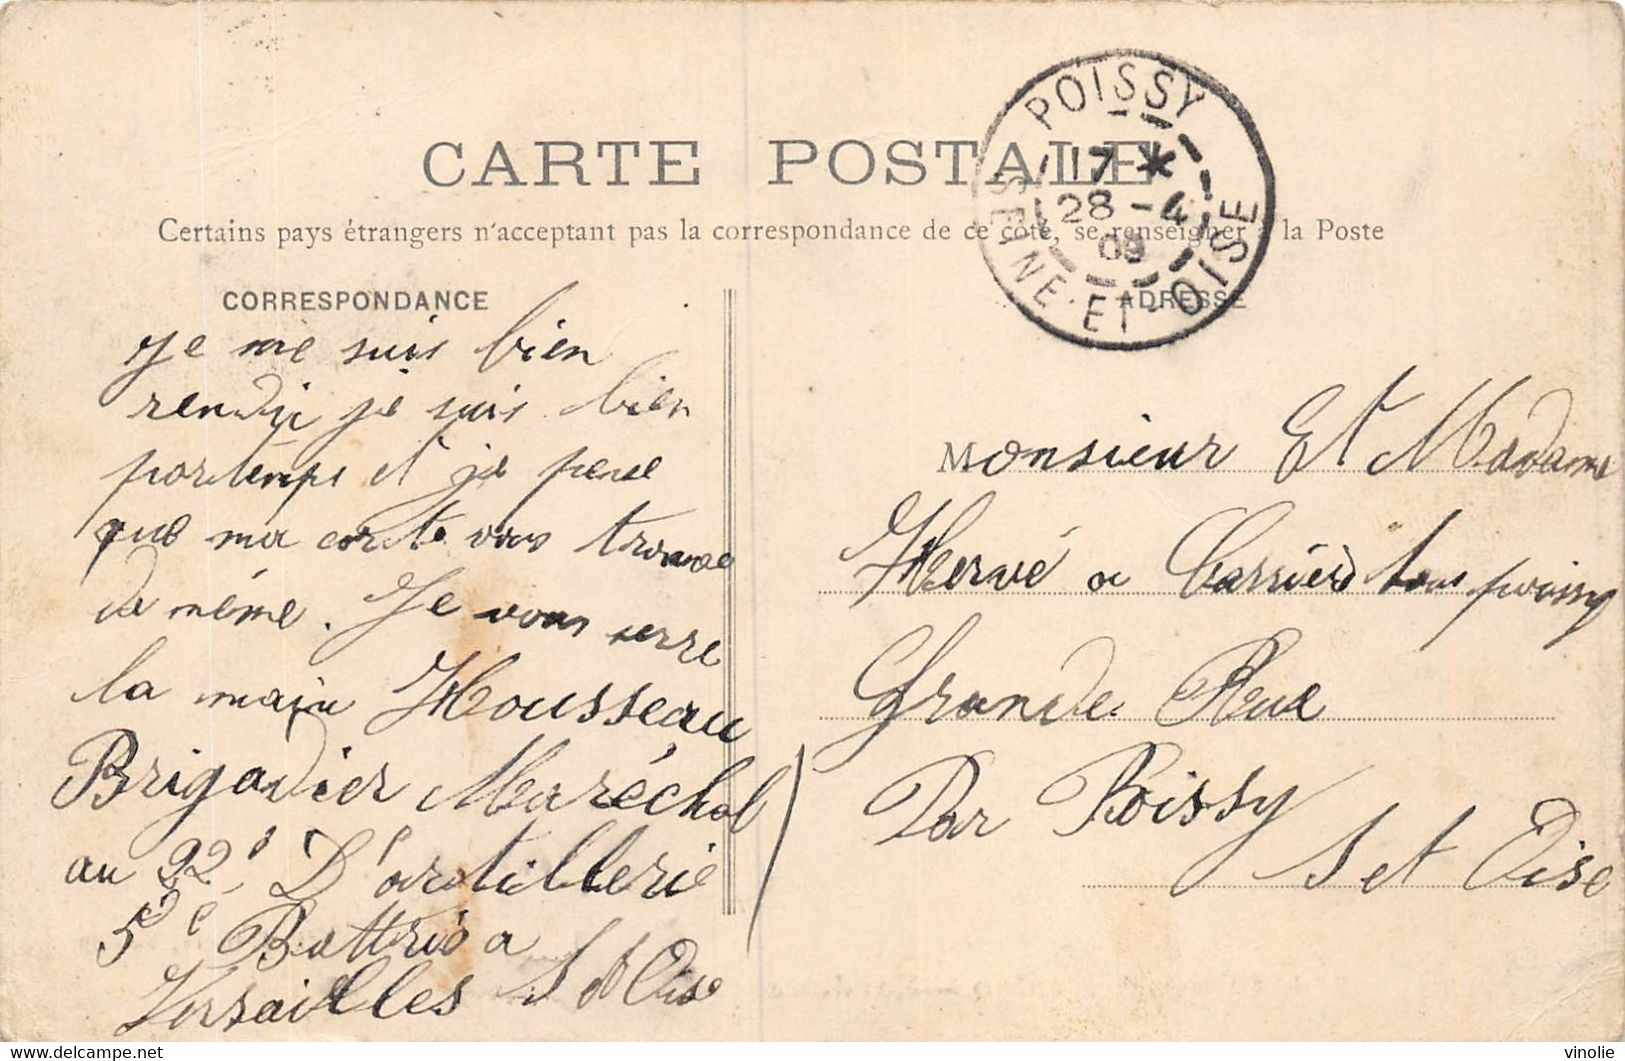 CARTE POSTALE
Certains pays étrangers n'acceptant pas la correspondance de ce côté, se renseigner à la Poste
POISSY
17 *
28 - 4
09
SEINE-ET-OISE
CORRESPONDANCE
Je me suis bien
rendu je suis bien
portemps et je pense
que ma carte vous trouve
de même. Je vous serre
la main Housseau
Brigadier Maréchal
au 22e D'artillerie
5e Battrie a
Versailles S et Oise
ADRESSE
Monsieur Et Madame
Hervé a Carrières sous poissy
Grande Rue
Par Poissy
S et Oise
www.delcampe.net
vinolie